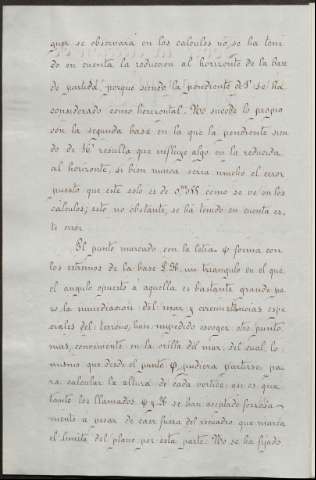 que se observará en los calculos no, se ha teni
do en cuenta la reducion al horizonte de la base
de partida, porque siendo la pendiente de 1º se ha
considerado como horizontal. No sucede lo propio
con la segunda base en la que la pendiente sien
do de resulta que influye algo en la reducida
al horizonte, si bien nunca seria mucho el error
puesto que este solo es de como se ve en los
calculos; esto no obstante, se ha tenido en cuenta es
te error
El punto marcado con la letra φ forma con
los estremos de la base un triangulo en el que
el angulo opuesto á aquella es bastante grande pe
ro la inmediacion del mar y circunstancias espe
ciales del terreno, han impedido escoger otro punto
mas conveniente en la orilla del mar, del cual lo
mismo que desde el punto φ pudiera partirse pa
ra calcular la altura de cada vertice: asi es que
tanto los llamados φ y se han aceptado forzosa
mente a pesar de caer fuera del recuadro que marca
el limite del plano por esta parte. No se ha fijado